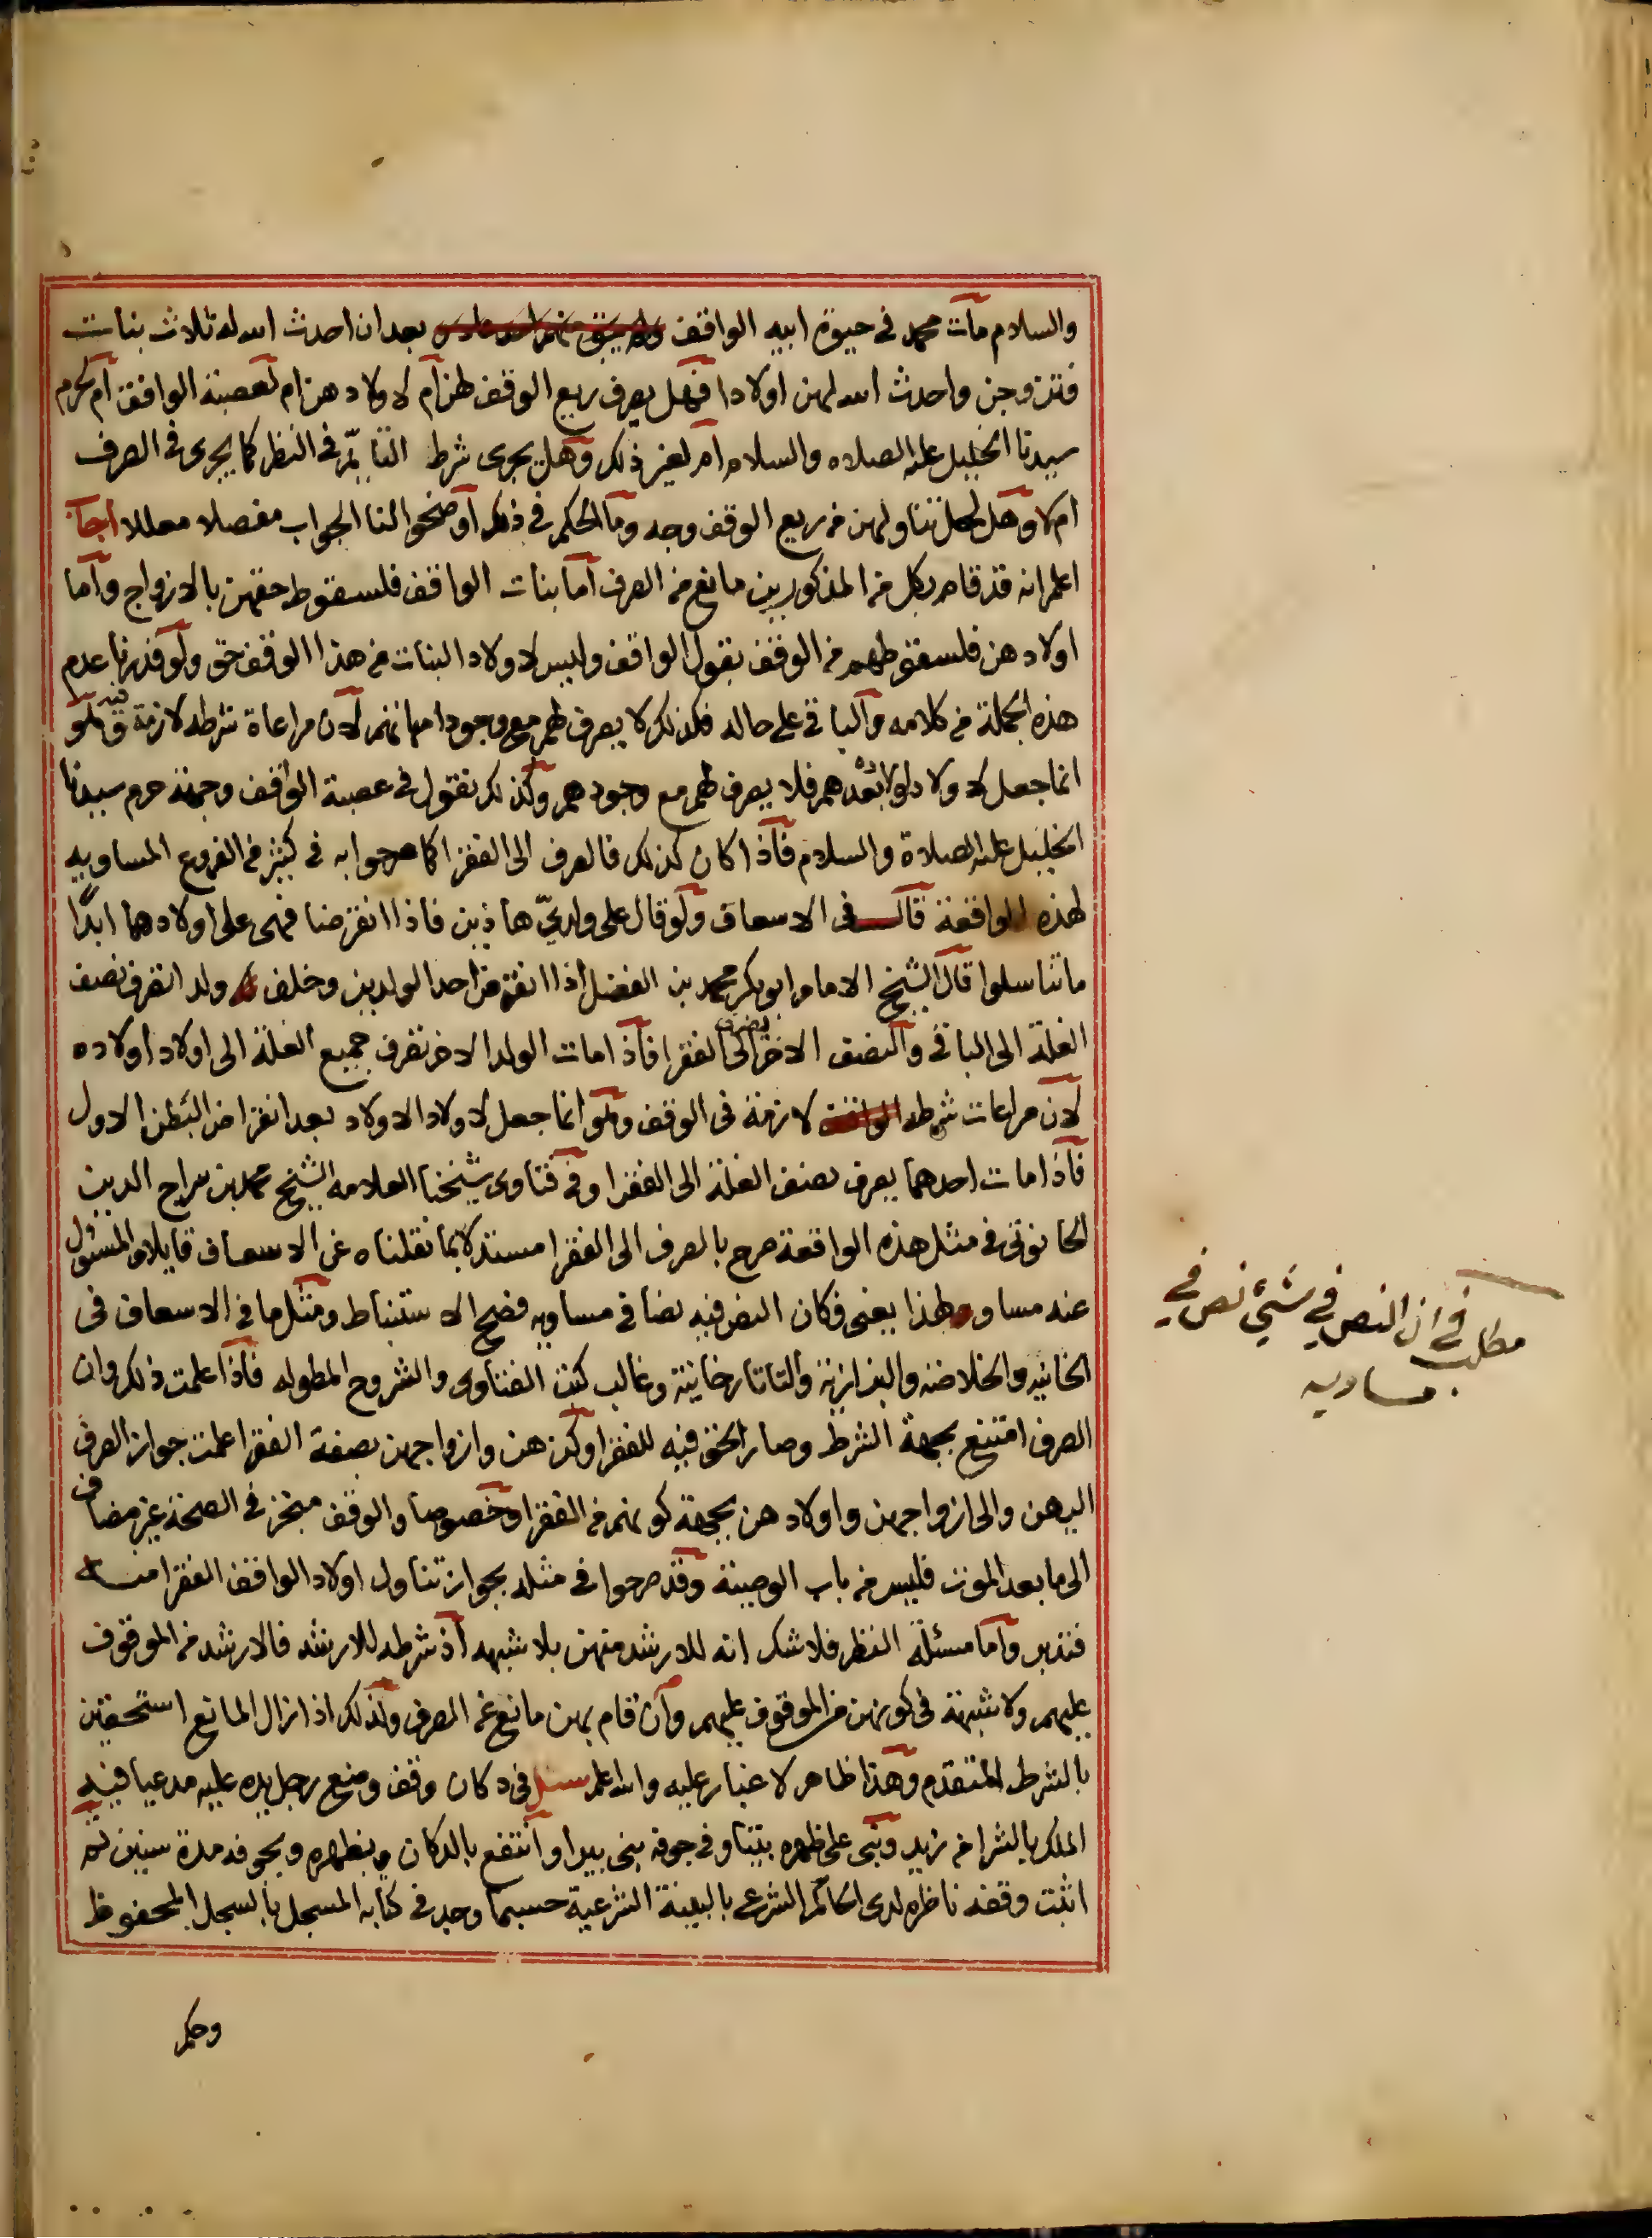 والسلام مات محمد في حيوة ابيه الواقف بعد ان احدث الله له ثلاث بنات
فتزوجن واحدث الله لهن اولادا فهل يصرف ريع الوقف لهن ام لاولادهن ام لعصبة الواقف ام لحرم
سيدنا الخليل عليه الصلاه والسلام ام لغير ذلك وهل يجرى شرط في النظر كما يجرى في الصرف
ام لا وهل لحل تناولهن من ريع الوقف وجه وما الحكم في ذلك اوضحوا لنا الجواب مفصلا معللا اجاب
اعلم انه قد قام بكل من المذكورين مانع من الصرف اما بنات الواقف فلسقوط حقهن بالازواج واما
اولادهن فلسقوطهم من الوقف بقول الواقف وليس لاولاد البنات من هذا الوقف حق ولو قدرنا عدم
هذه الجملة من كلامه والباقي على حاله فكذلك لا يصرف لهم مع وجود امهاتهم لان مراعاة شرطه لازمة وهو
انما جعل لاولاد اولاده بعدهم فلا يصرف لهم مع وجودهم وكذلك نقول في عصبة الواقف وجهة حرم سيدنا
الخليل عليه الصلاة والسلام فاذا كان كذلك فالصرف الى الفقرا كما صرحوا به في كثير من الفروع المساويه
لهذه الواقعة قال في الاسعاف ولو قال على ولديّ هاذين فاذا انقرضا فهى على اولادهما ابدًا
ما تناسلوا قال الشيخ الامام ابو بكر محمد بن الفضل اذا انقرض احد الولدين وخلف ولد انصرف نصف
الغلة الى الباقي والنصف الاخر يصرف الى الفقرا فاذا مات الولد الاخر تصرف جميع الغلة الى اولاد اولاده
لان مراعات شرطه لازمة في الوقف وهو انما جعل لاولاد الاولاد بعد انقراض البطن الاول
فاذا مات احدهما يصرف نصف الغلة الى الفقرا وفي فتاوى شيخنا العلامه الشيخ محمد بن سراج الدين
الحانوتي في مثل هذه الواقعة صرح بالصرف الى الفقرا مستدلا بما نقلناه عن الاسعاف قايلا والمسئول
عنه مساو لهذا يعنى فكان النص فيه نصا في مساويه فصح الاستنباط ومثل ما في الاسعاف في
الخانيه والخلاصه والبزازية والتاتارخانية وغالب كتب الفتاوى والشروح المطوله فاذا علمت ذلك وان
الصرف امتنع بجهة الشرط وصار الحق فيه للفقرا وكن هن وازواجهن بصفة الفقرا علمت جواز الصرف
اليهن والى ازواجهن واولادهن بجهة كونهم من الفقرا وخصوصا والوقف منجز في الصحة غير مضاف
الى ما بعد الموت فليس من باب الوصية وقد صرحوا في مثله بجواز تناول اولاد الواقف الفقرا منه
فتدبر واما مسئلة النظر فلا شك انه للارشد منهن بلا شبهه اذ شرطه للارشد فالارشد من الموقوف
عليهم ولا شبهة في كونهن من الموقوف عليهم وان قام بهن مانع عن الصرف ولذلك اذا زال المانع استحقين
بالشرط المتقدم وهذا ظاهر لا غبار عليه والله اعلم سئل في دكان وقف وضع رجل يده عليه مدعيا فيه
الملك بالشرا من زيد وبنى على ظهره بيتا وفي جوفه بنى بيرا وانتفع بالدكان وبظهره وبجوفه مدة سنين ثم
اثبت وقفه ناظره لدى الحاكم الشرعي بالبينة الشرعية حسبما وجد في كتابه المسجل بالسجل المحفوظ
وحكم
مطلب في ان النص في شيئ نص في
مساويه